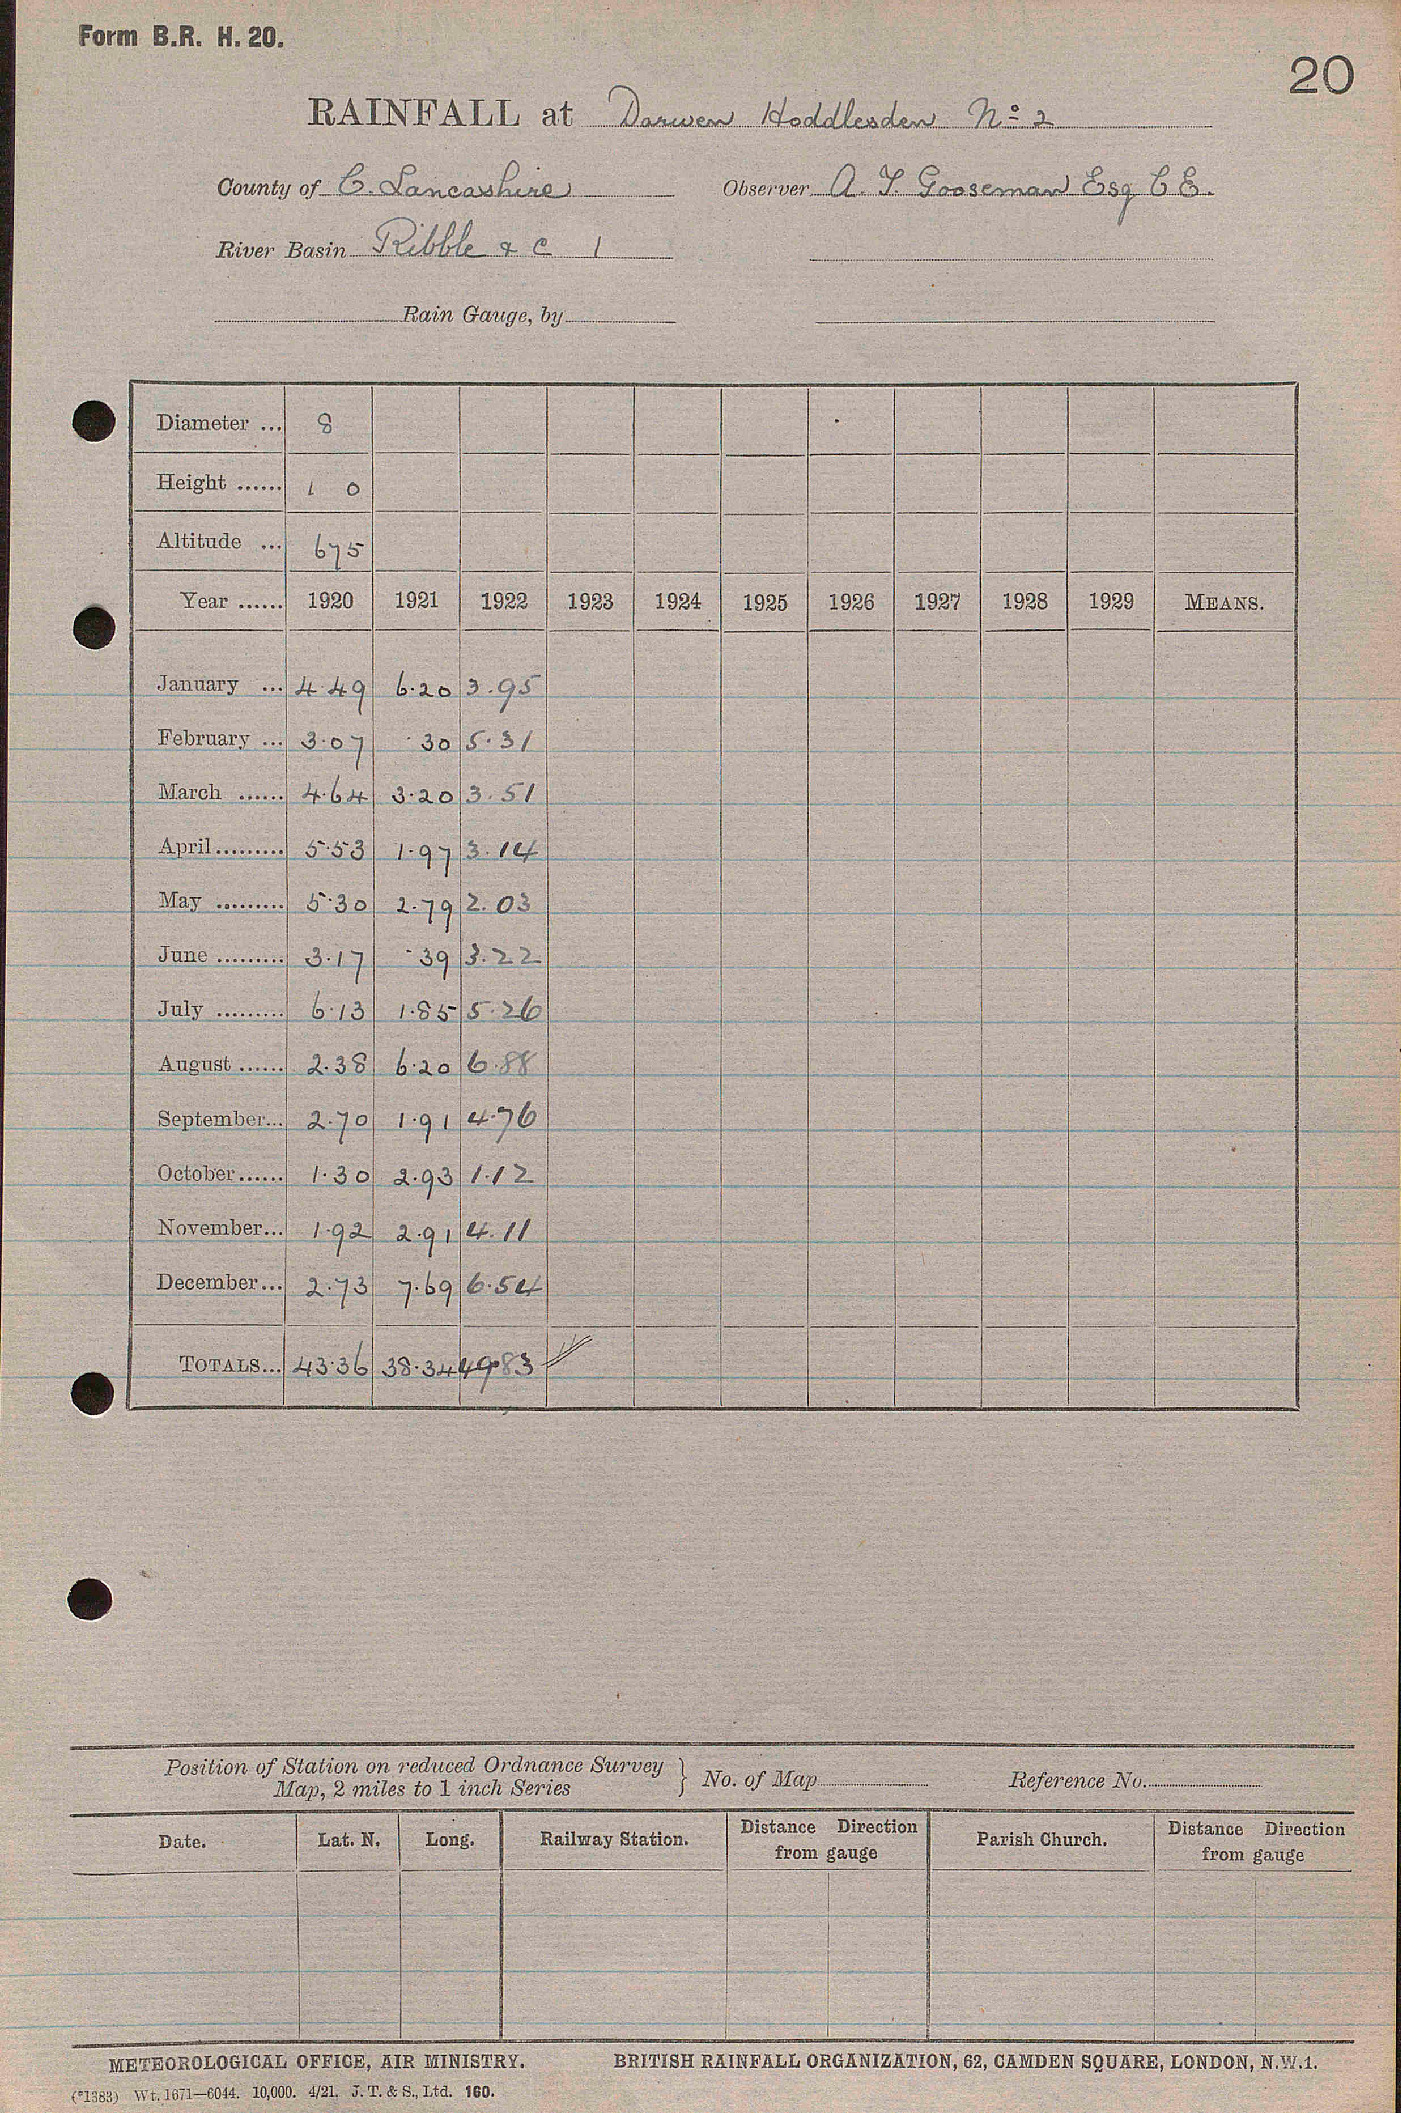 Form B.R. H. 20.
20
RAINFALL at Darwen Hoddlesden No 2
County of C. Lancashire Observer A. T. Gooseman Esq C E.
River Basin Ribble & c 1
Rain Gauge, by
Diameter ... 8
Height ...... 1 0
Altitude ... 675
Year ...... 1920 1921 1922 1923 1924 1925 1926 1927 1928 1929 MEANS.
January ... 4.49 6.20 3.95
February ... 3.07 .30 5.31
March ...... 4.64 3.20 3.51
April......... 5.53 1.97 3.14
May ......... 5.30 2.79 2.03
June ......... 3.17 .39 3.22
July ......... 6.13 1.85 5.26
August ...... 2.38 6.20 6.88
September... 2.70 1.91 4.76
October...... 1.30 2.93 1.12
November... 1.92 2.91 4.11
December... 2.73 7.69 6.54
TOTALS... 43.36 38.34 49.83
Position of Station on reduced Ordnance Survey
Map, 2 miles to 1 inch Series } No. of Map Reference No.
Date. Lat. N. Long. Railway Station. Distance Direction from gauge Parish Church. Distance Direction from gauge
METEOROLOGICAL OFFICE, AIR MINISTRY. BRITISH RAINFALL ORGANIZATION, 62, CAMDEN SQUARE, LONDON, N.W.1.
(*1383) Wt. 1671—6044. 10,000. 4/21. J. T. & S., Ltd. 160.